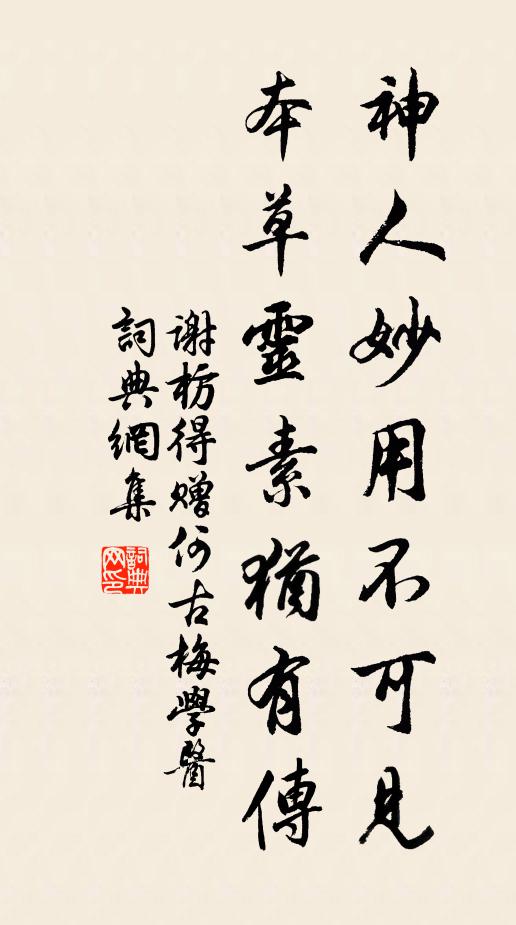 神人妙用不可見
本草靈素猶有傳
谢枋得贈何古梅學醫
詞典網集
詞典網印